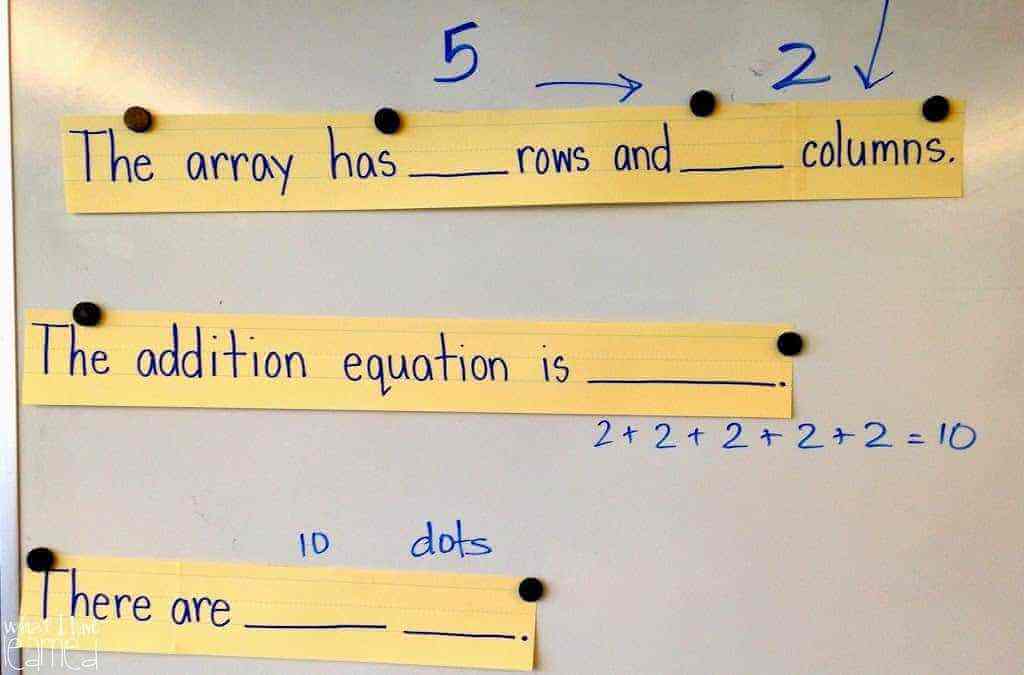 5 → 2 ↓
The array has ____ rows and ____ columns.
The addition equation is ________.
2 + 2 + 2 + 2 + 2 = 10
10 dots
There are ____ ____.
what I have
learned